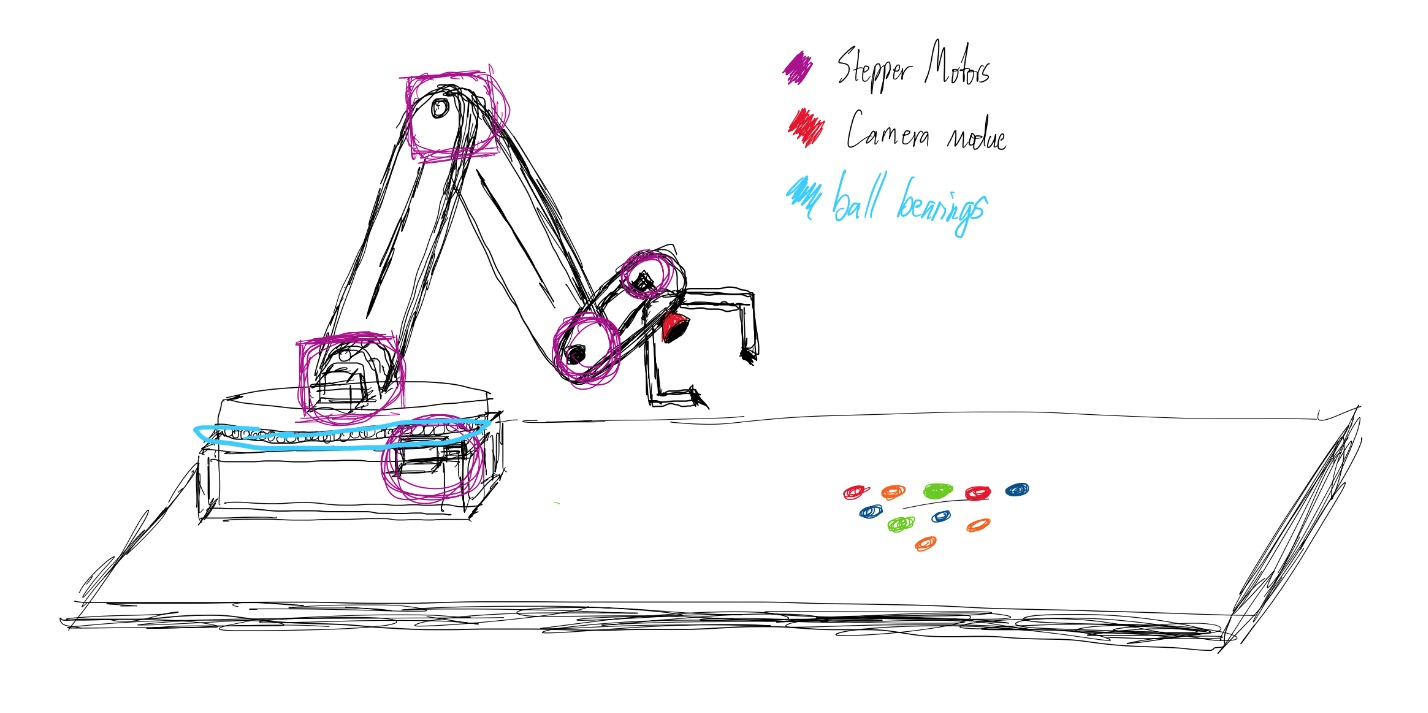 Stepper Motors
Camera modue
ball bearings